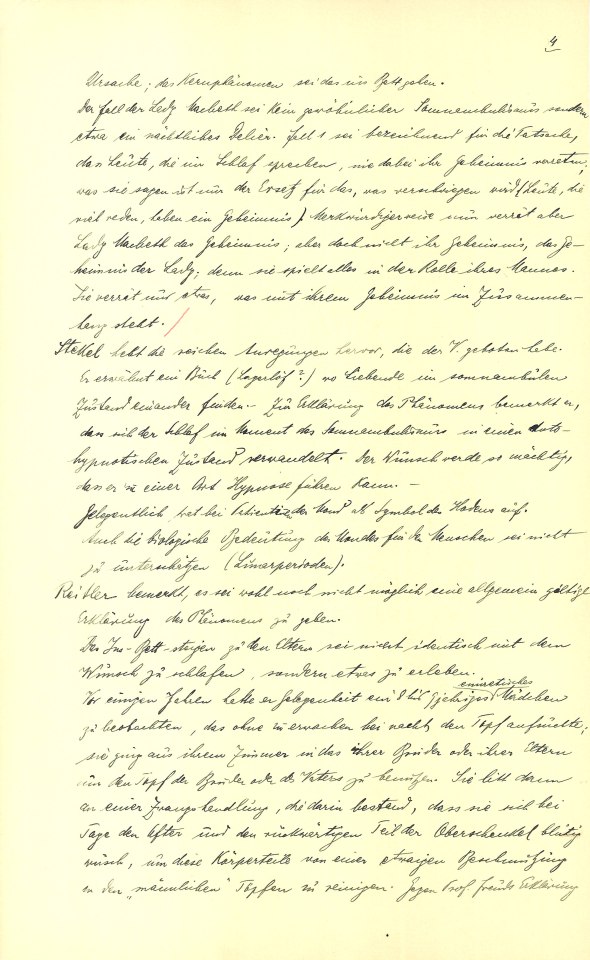 4
Ursache; das Kernphänomen sei das ins Bett gehen.
Der Fall der Lady Macbeth sei kein gewöhnlicher Somnambulismus sondern
etwa ein nächtliches Delir. Fall 1 sei bezeichnend für die Tatsache,
dass Leute, die im Schlaf sprechen, nie dabei ihr Geheimnis verraten;
was sie sagen ist nur der Ersatz für das, was verschwiegen wird (Leute, die
viel reden, haben ein Geheimnis). Merkwürdigerweise nun verrät aber
Lady Macbeth das Geheimnis; aber doch nicht ihr Geheimnis, das Ge-
heimnis der Lady; denn sie spielt alles in der Rolle ihres Mannes.
Sie verrät nur etwas, was mit ihrem Geheimnis im Zusammen-
hang steht.
Stekel hebt die reichen Anregungen hervor, die der V. geboten habe.
Er erwähnt ein Buch (Lagerlöf?) wo Liebende im somnambülen
Zustand einander finden. – Zur Erklärung des Phänomens bemerkt er,
dass sich der Schlaf im Moment des Somnambulismus in einen auto-
hypnotischen Zustand verwandelt. Der Wunsch werde so mächtig,
dass er zu einer Art Hypnose führen kann. –
Gelegentlich trat bei Patienten der Mond als Symbol des Hodens auf.
Auch die biologische Bedeutung des Mondes für die Menschen sei nicht
zu unterschätzen (Lunarperioden).
Reitler bemerkt, es sei wohl noch nicht möglich eine allgemein gültige
Erklärung des Phänomens zu geben.
Das Ins-Bett-steigen zu den Eltern sei nicht identisch mit dem
Wunsch zu schlafen, sondern etwas zu erleben.
Vor einigen Jahren hatte er Gelegenheit ein 8 bis 9jähriges enuretisches Mädchen
zu beobachten, das ohne zu erwachen bei nacht den Topf aufsuchte;
sie ging aus ihrem Zimmer in das ihrer Brüder oder ihrer Eltern
um den Topf der Brüder oder des Vaters zu benützen. Sie litt dann
an einer Zwangshandlung, die darin bestand, dass sie sich bei
Tage den After und den rückwärtigen Teil der Oberschenkel blutig
wusch, um diese Körperteile von einer etwaigen Beschmutzung
in den „männlichen" Töpfen zu reinigen. Gegen Prof. Freuds Erklärung